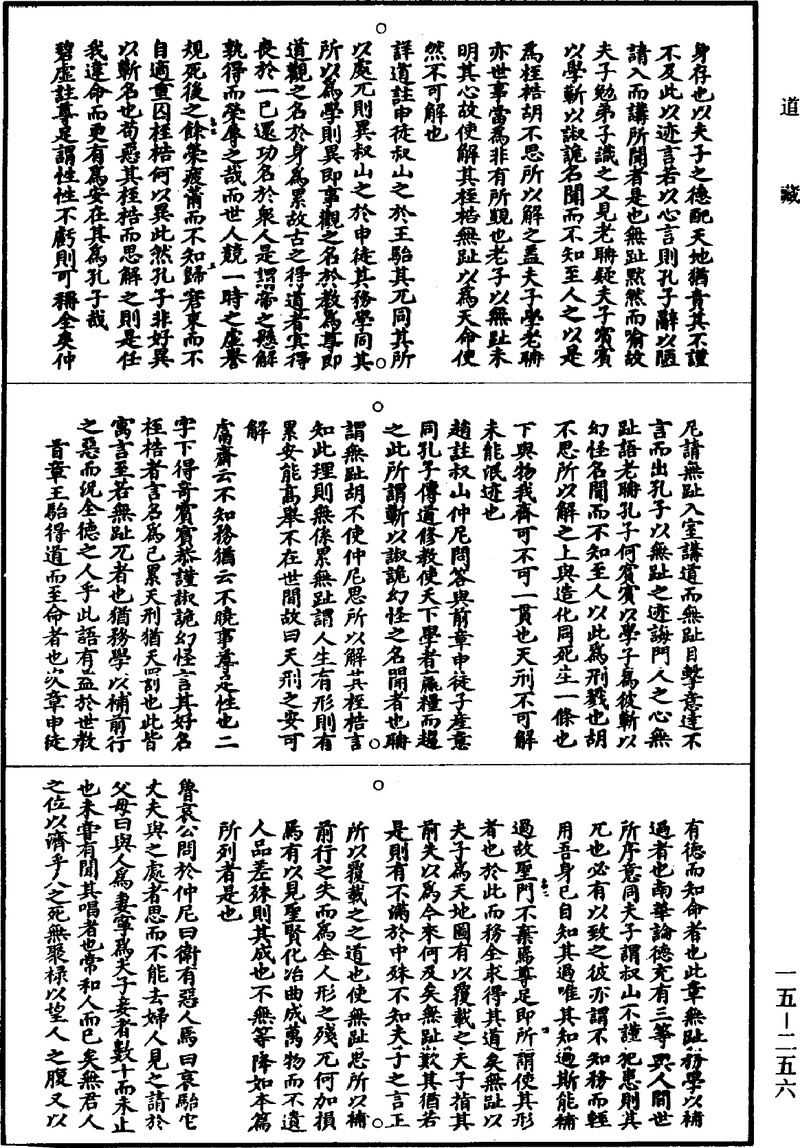 道藏
身存也以夫子之德配天地猶責其不謹
不及此以迹言若以心言則孔子辭以陋
請入而講所聞者是也無趾默然而喻故
夫子勉弟子識之又見老聃疑夫子賓賓
以學蘄以諔詭名聞而不知至人之以是
為桎梏胡不思所以解之蓋夫子學老聃
亦世事當為非有所覬也老子以無趾未
明其心故使解其桎梏無趾以為天命使
然不可解也
詳道註申徒叔山之於王駘其兀同其所
以處兀則異叔山之於申徒其務學同其
所以為學則異即事觀之名於教為尊即
道觀之名於身為累故古之得道者實得
喪於一己還功名於衆人是謂帝之懸解
孰得而榮辱之哉而世人競一時之虛譽
規死後之餘榮疲薾而不知歸窘束而不
自適重囚桎梏何以異此然孔子非好異
以蘄名也苟惡其桎梏而思解之則是任
我違命而更有為安在其為孔子哉
碧虛註尊足謂性性不虧則可稱全矣仲
尼請無趾入室講道而無趾目擊意達不
言而出孔子以無趾之迹誨門人之心無
趾語老聃孔子何賓賓以學子為彼蘄以
幻怪名聞而不知至人以此為刑戮也胡
不思所以解之上與造化同死生一條也
下與物我齊可不可一貫也天刑不可解
未能泯迹也
趙註叔山仲尼問答與前章申徒子產意
同孔子傳道修教使天下學者贏糧而趨
之此所謂蘄以諔詭幻怪之名聞者也聃
謂無趾胡不使仲尼思所以解其桎梏言
知此理則無係累無趾謂人生有形則有
累安能高舉不在世間故曰天刑之安可
解
鬳齋云不知務猶云不曉事尊足性也二
字下得奇賓賓恭謹諔詭幻怪言其好名
桎梏者言名為己累天刑猶天罰也此皆
寓言至若無趾兀者也猶務學以補前行
之惡而況全德之人乎此語有益於世教
首章王駘得道而至命者也次章申徒
有德而知命者也此章無趾務學以補
過者也南華論德充有三等與人間世
所序意同夫子謂叔山不謹犯患則其
兀也必有以致之彼亦謂不知務而輕
用吾身已自知其過唯其知過斯能補
過故聖門不棄焉尊足即所謂使其形
者也於此而務全求得其道矣無趾以
夫子為天地圖有以覆載之夫子指其
前失以為今來何及矣無趾歎其猶若
是則有不滿於中殊不知夫子之言正
所以覆載之之道也使無趾思所以補
前行之失而為全人形之殘兀何加損
焉有以見聖賢化冶曲成萬物而不遺
人品差殊則其成也不無等降如本篇
所列者是也
魯哀公問於仲尼曰衛有惡人焉曰哀駘它
丈夫與之處者思而不能去婦人見之請於
父母曰與人為妻寧為夫子妾者數十而未止
也未嘗有聞其唱者也常和人而已矣無君人
之位以濟乎人之死無聚祿以望人之腹又以
一五—二五六